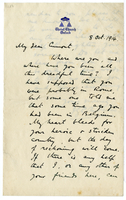 Christ Church
Oxford
8 Oct. 1914
My dear Cumont,
Where are you, and
where have you been all
this dreadful time? I
have supposed that you
were probably in Rome
but some one told me
that some time ago you
had been in Belgium.
My heart bleeds for
your heroic & stricken
country but the day
of reckoning will come.
If there is any help
that I or any other of
your friends here can